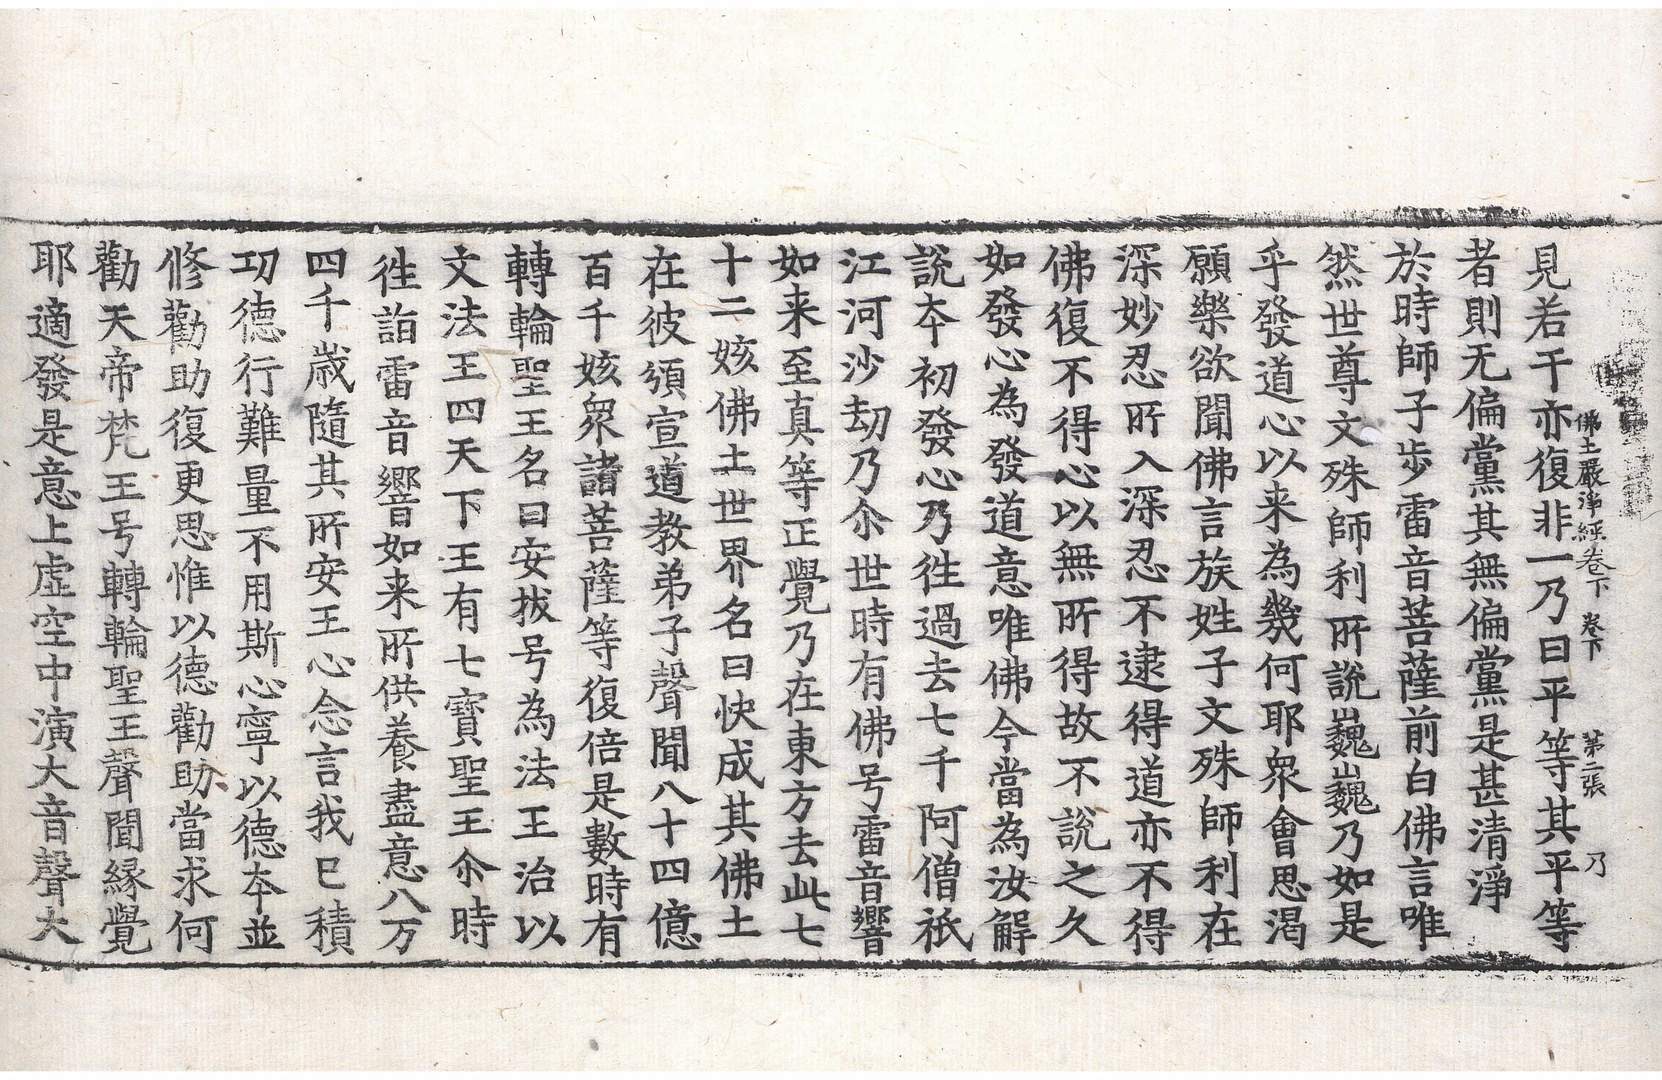 佛土嚴淨經卷下 卷下 第二張 乃
見若干亦復非一乃曰平等其平等
者則无偏黨其無偏黨是甚清淨
於時師子步雷音菩薩前白佛言唯
然世尊文殊師利所說巍巍乃如是
乎發道心以来為幾何耶眾會思渴
願樂欲聞佛言族姓子文殊師利在
深妙忍所入深忍不逮得道亦不得
佛復不得心以無所得故不說之久
如發心為發道意唯佛今當為汝解
說夲初發心乃徃過去七千阿僧祇
江河沙劫乃尒世時有佛号雷音響
如来至真等正覺乃在東方去此七
十二姟佛土世界名曰快成其佛土
在彼頒宣道教弟子聲聞八十四億
百千姟眾諸菩薩等復倍是數時有
轉輪聖王名曰安拔号為法王治以
文法王四天下王有七寶聖王尒時
徃詣雷音響如来所供養盡意八万
四千歲隨其所安王心念言我已積
功德行難量不用斯心寧以德夲並
修勸助復更思惟以德勸助當求何
勸天帝梵王号轉輪聖王聲聞緣覺
耶適發是意上虛空中演大音聲大